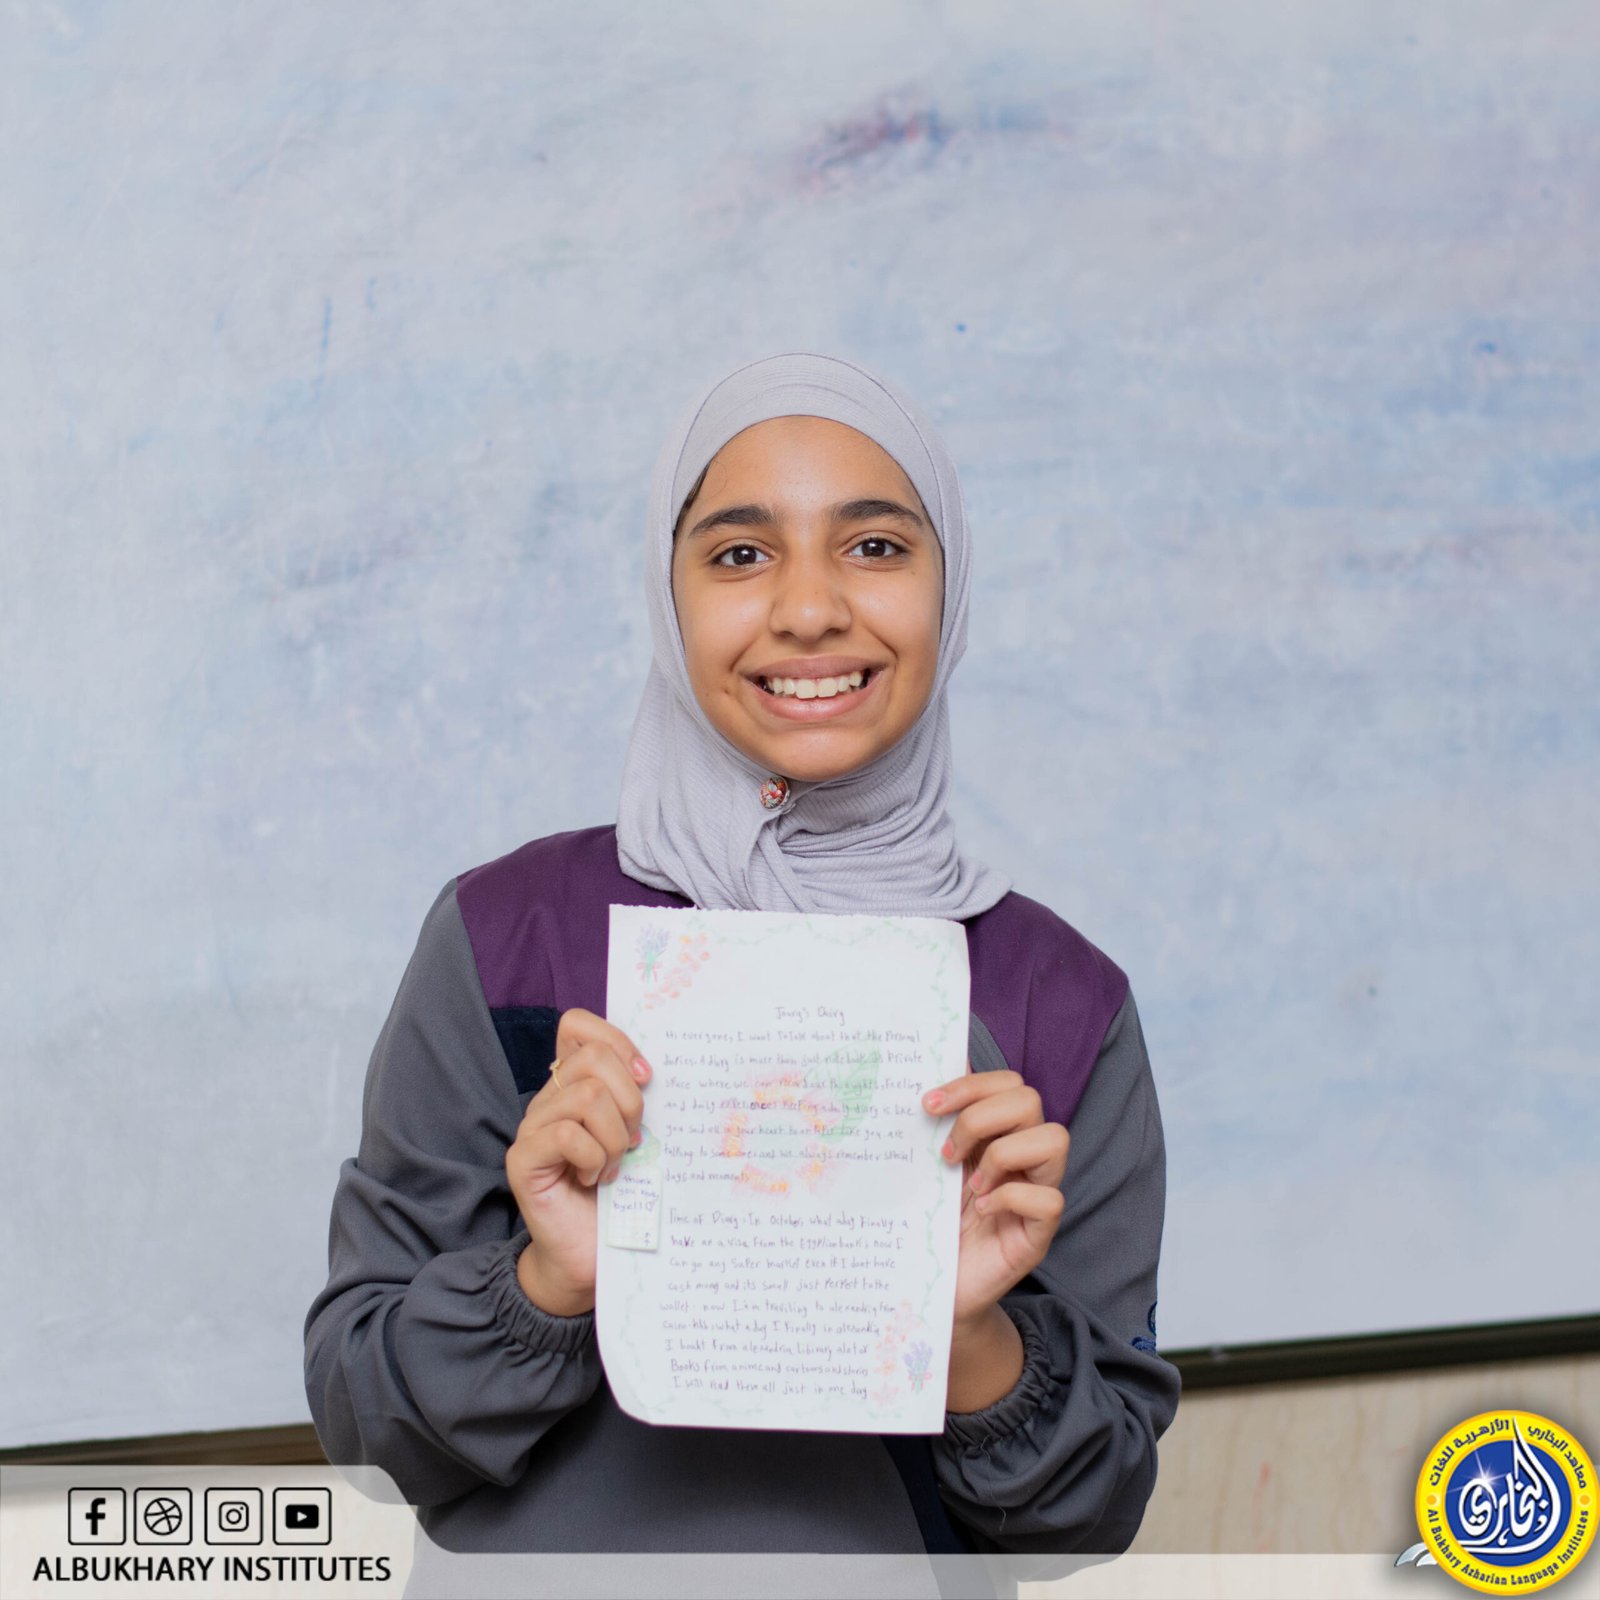 Joury's Dairy
Hi everyone, I want to talk about that the Personal
duries. A diary is more than just note book its Private
space where we can record our thoughts, Feelings
and daily experiences keeping a daily diary is like
you said all in your heart
talking to some one and we always remember special
days and moments
Time of Diary: In October, what a day Finally a
have a visa From the Egyption bank, now I
can go any Super market even if I dont have
cash mony and its small just Perfect to the
wallet. now I am traviling to alexandria from
Cairo what a day I Finally in alexandria
I bouht From alexandria Library alot of
Books from anime and cartoons and stories
I will read them all just in one day
thank
you
bye!!♡
ALBUKHARY INSTITUTES
معاهد البخاري الأزهرية للغات
البخاري
Al Bukhary Azharian Language Institutes